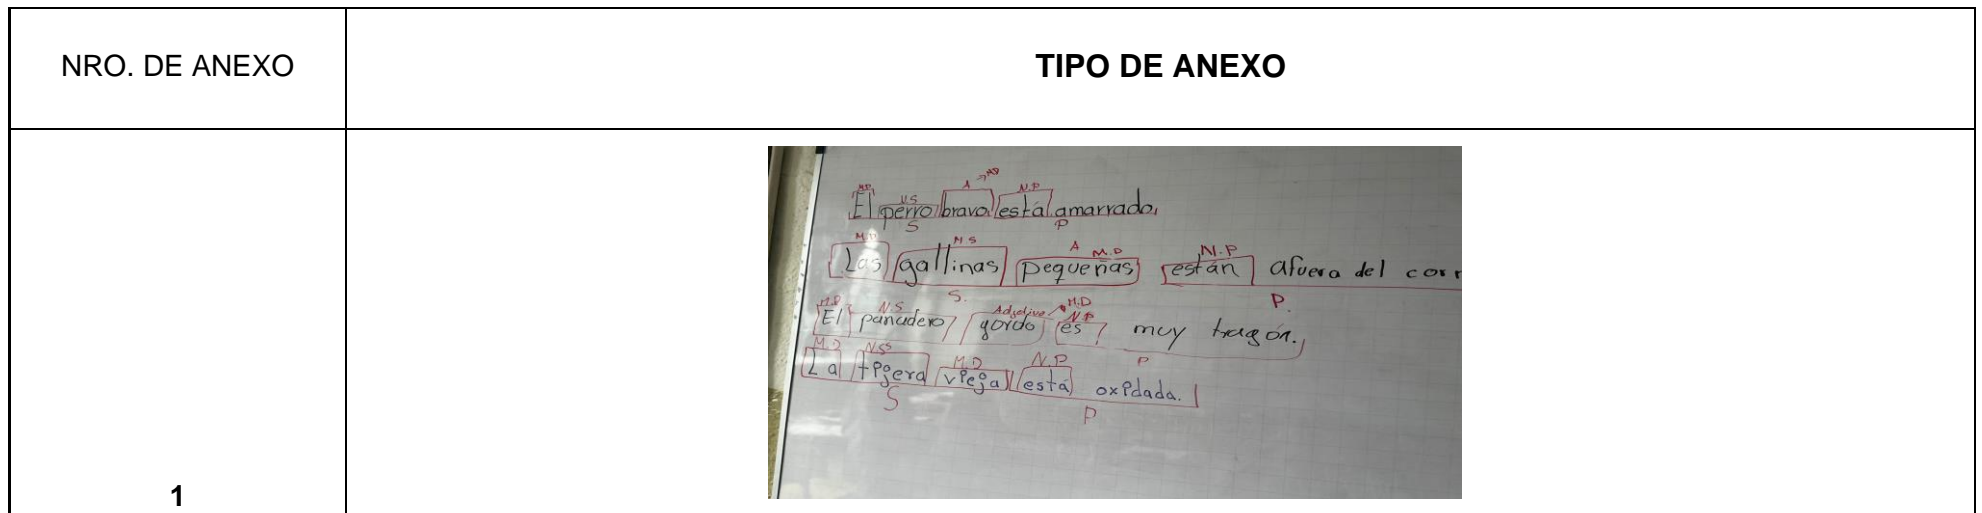 NRO. DE ANEXO
TIPO DE ANEXO
M.D N.S A → MD N.P
El perro bravo está amarrado.
S P
M.D N.S A M.D N.P
Las gallinas pequeñas están afuera del corr
S. P.
M.D. N.S Adjetivo M.D N.P
El panadero gordo es muy tragón.
P
M.D N.S M.D N.P
La tijera vieja está oxidada.
S P
1